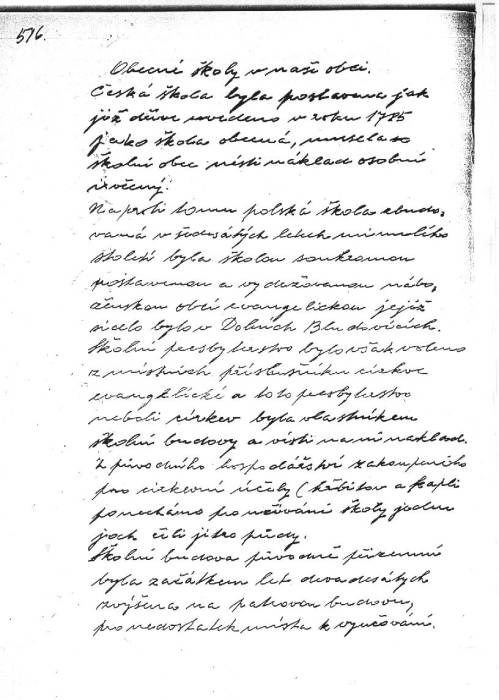 516.
Obecné školy v naší obci.
Česká škola byla postavena jak
již dříve uvedeno v roku 1785
jako škola obecná, musela so
školní obec nésti náklad osobní
i věcný.
Naproti tomu polská škola zbudo,
vaná v šedesátých letech minulého
století byla školou soukromou
postavenou a vydržovanou nábo,
ženskou obcí evangelickou jejíž
sídlo bylo v Dolních Bludovicích.
Školní presbyterstvo bylo však voleno
z místních příslušníku církve
evangelické a toto presbyterstvo
neboli církev byla vlastníkem
školní budovy a nésti na ni náklad.
Z původního hospodářství zakoupeného
pro církevní účely (hřbitov a kapli
ponecháno pro užívání školy jeden
joch čili jitro půdy.
Školní budova původně přízemní
byla začátkem let devadesátých
zvýšena na patrovou budovu,
pro nedostatek místa k vyučování.